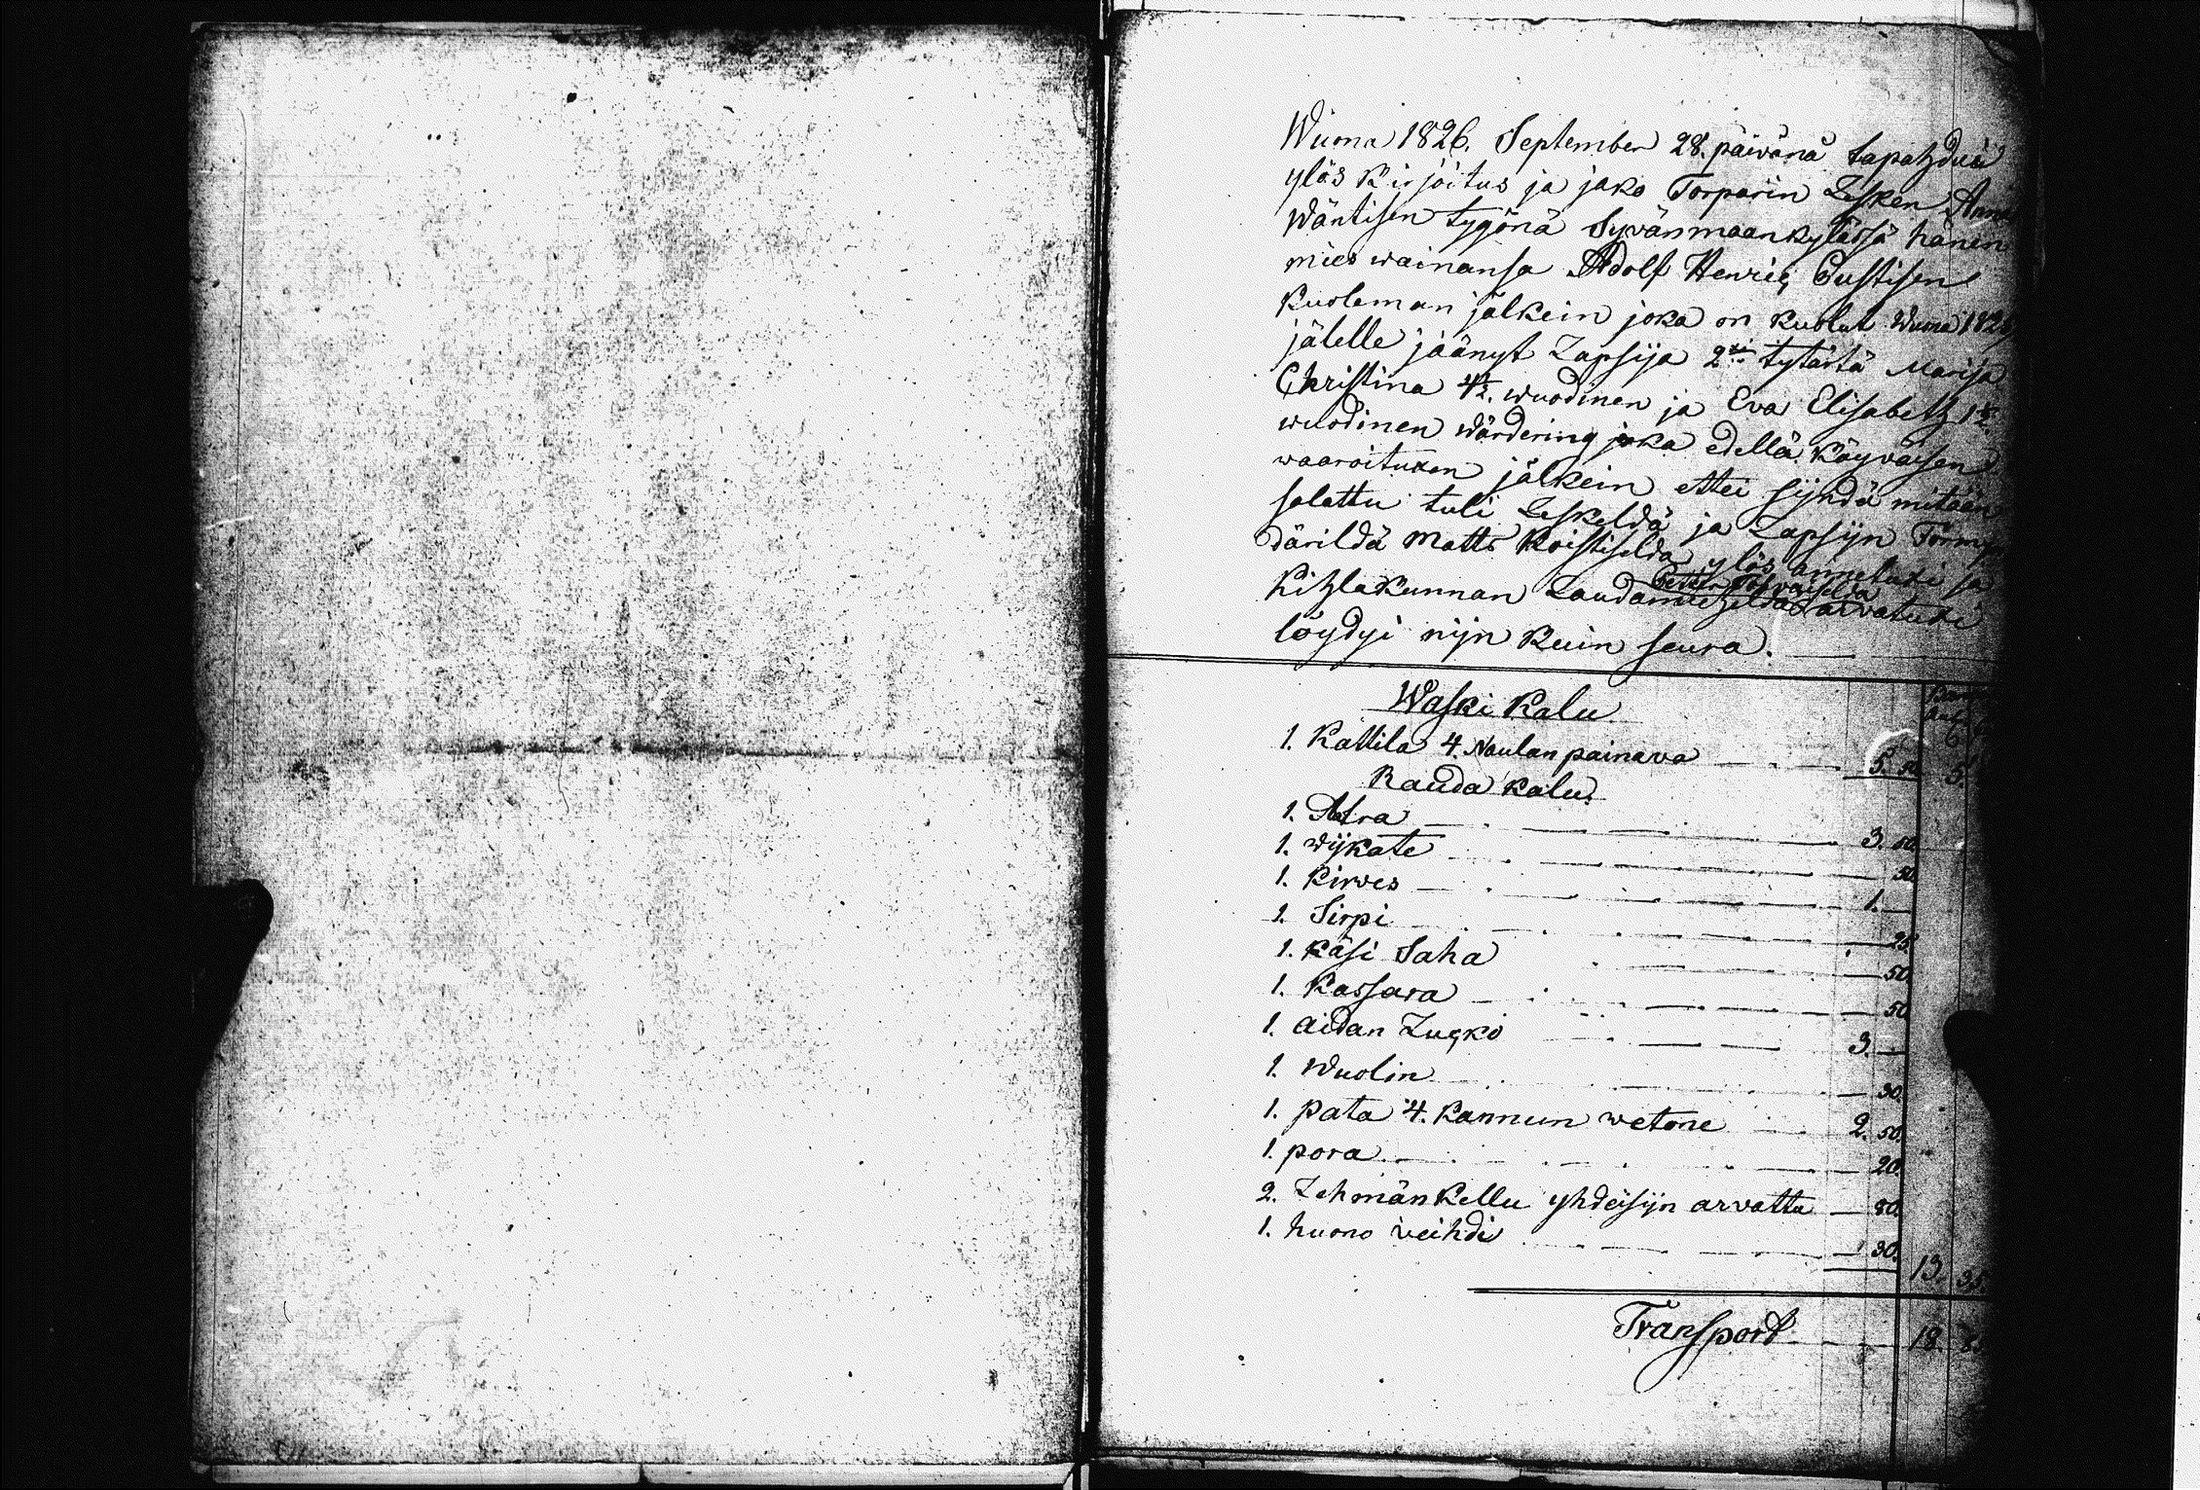 Wuona 1826. September 28. päivänä tapahdui
ylös kirjoitus ja jako Torparin Lesken Anna
Wäntisen tygönä Syvänmaankylässä hänen
mies wainansa Adolf Henric Custisen
kuoleman jälkein joka on kuolut wuona
jälelle jäänyt Lapsija 2xi tytärtä Marija
Christina 4½. wuodinen ja Eva Elisabeth 1½
wuodinen wärdering joka edellä käyväisen
waaroituxen jälkein ettei sijndä mitään
salattu tuli Leskeldä ja Lapsijn Förmyn
därildä Matts Koistiselda ylös annetuxi ja
Kihlakunnan Laudamieheldä arvatuxi
löydyi nijn kuin seura.
Waski Kalu
1. Kattila 4. Naulan painava 5. 50
Rauda kalu.
1. Atra 3. 50
1. wijkate 50
1. Kirves 1. —
1. Sirpi 25.
1. käsi Saha 50
1. Kassara 50
1. aidan Lucko 3. —
1. Wuolin 30.
1. pata 4. Kannun wetone 2. 50.
1. pora 20.
2. Lehmän Kellu yhdeisijn arvattu 80.
1. huono veihdi 30. 13. 35
Transport 18. 85